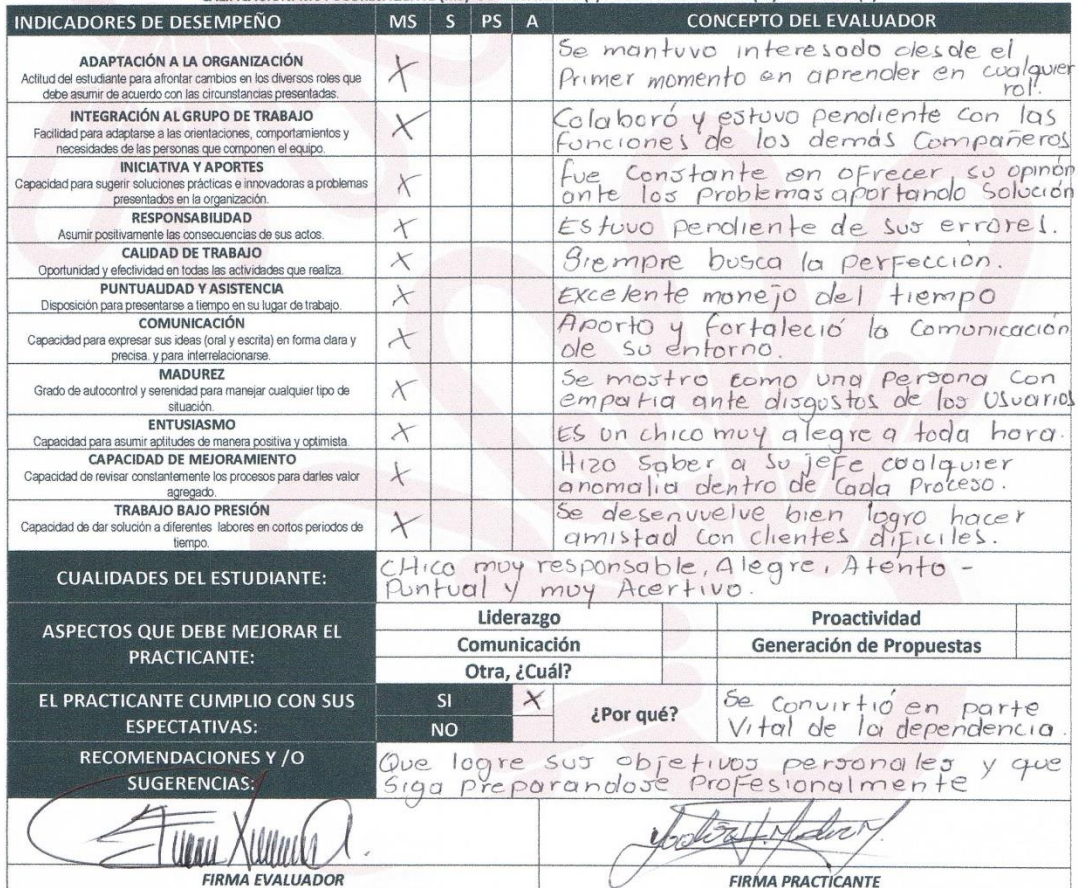 INDICADORES DE DESEMPEÑO MS S PS A CONCEPTO DEL EVALUADOR
ADAPTACIÓN A LA ORGANIZACIÓN
Actitud del estudiante para afrontar cambios en los diversos roles que
debe asumir de acuerdo con las circunstancias presentadas.
X
Se mantuvo interesado desde el
Primer momento en aprender en cualquier
rol.
INTEGRACIÓN AL GRUPO DE TRABAJO
Facilidad para adaptarse a las orientaciones, comportamientos y
necesidades de las personas que componen el equipo.
X
Colaboró y estuvo pendiente con las
funciones de los demás Compañeros
INICIATIVA Y APORTES
Capacidad para sugerir soluciones prácticas e innovadoras a problemas
presentados en la organización.
X
fue Constante en ofrecer su opinón
ante los Problemas aportando Solución
RESPONSABILIDAD
Asumir positivamente las consecuencias de sus actos.
X
Estuvo pendiente de sus errores.
CALIDAD DE TRABAJO
Oportunidad y efectividad en todas las actividades que realiza.
X
Siempre busca la perfección.
PUNTUALIDAD Y ASISTENCIA
Disposición para presentarse a tiempo en su lugar de trabajo.
X
Excelente manejo del tiempo
COMUNICACIÓN
Capacidad para expresar sus ideas (oral y escrita) en forma clara y
precisa. y para interrelacionarse.
X
Aporto y fortaleció la Comunicación
de su entorno.
MADUREZ
Grado de autocontrol y serenidad para manejar cualquier tipo de
situación.
X
Se mostro como una Persona con
empatia ante disgustos de los Usuarios
ENTUSIASMO
Capacidad para asumir aptitudes de manera positiva y optimista.
X
ES un chico muy alegre a toda hora.
CAPACIDAD DE MEJORAMIENTO
Capacidad de revisar constantemente los procesos para darles valor
agregado.
X
Hizo Saber a su jefe cualquier
anomalia dentro de Cada Proceso.
TRABAJO BAJO PRESIÓN
Capacidad de dar solución a diferentes labores en cortos periodos de
tiempo.
X
Se desenvuelve bien logro hacer
amistad con clientes dificiles.
CUALIDADES DEL ESTUDIANTE:
CHico muy responsable, Alegre, Atento -
Puntual y muy Acertivo.
ASPECTOS QUE DEBE MEJORAR EL
PRACTICANTE:
Liderazgo Proactividad
Comunicación Generación de Propuestas
Otra, ¿Cuál?
EL PRACTICANTE CUMPLIO CON SUS
ESPECTATIVAS:
SI X
NO
¿Por qué?
Se convirtió en parte
Vital de la dependencia.
RECOMENDACIONES Y /O
SUGERENCIAS:
Que logre sus objetivos personales y que
Siga preparandose Profesionalmente
FIRMA EVALUADOR FIRMA PRACTICANTE